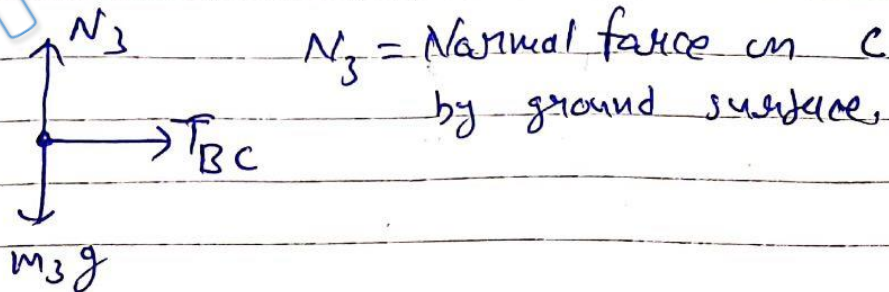 N₃
N₃ = Normal force on C
by ground surface,
T_BC
m₃g